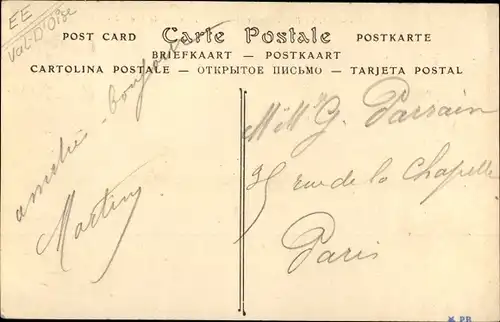 EE
Val D'Oise
POST CARD Carte Postale POSTKARTE
BRIEFKAART — POSTKAART
CARTOLINA POSTALE — ОТКРЫТОЕ ПИСЬМО — TARJETA POSTAL
amitié - Bonjour
Martin
G. Parrain
rue de la Chapelle
Paris
PB